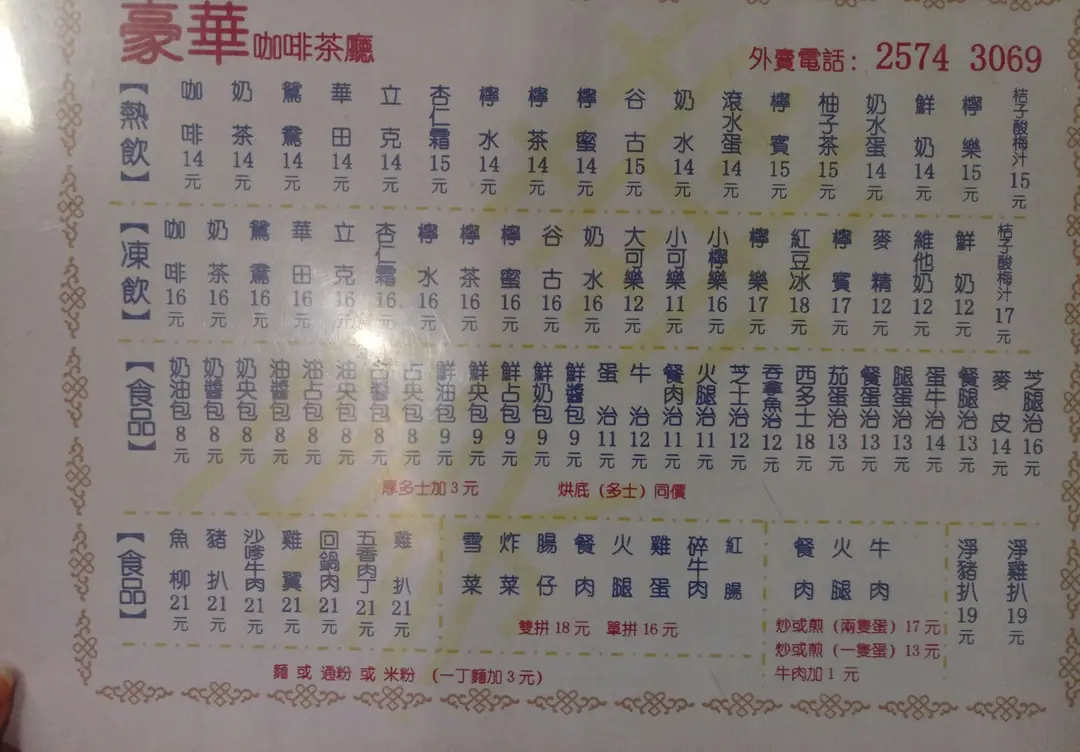 豪華咖啡茶廳
外賣電話：2574 3069
【熱飲】
咖啡14元
奶茶14元
鴛鴦14元
華田14元
立克14元
杏仁霜15元
檸水14元
檸茶14元
檸蜜14元
谷古15元
奶水14元
滾水蛋14元
檸賓15元
柚子茶15元
奶水蛋14元
鮮奶14元
檸樂15元
桔子酸梅汁15元
【凍飲】
咖啡16元
奶茶16元
鴛鴦16元
華田16元
立克16元
杏仁霜16元
檸水16元
檸茶16元
檸蜜16元
谷古16元
奶水16元
大可樂12元
小可樂11元
小檸樂16元
檸樂17元
紅豆冰18元
檸賓17元
麥精12元
維他奶12元
鮮奶12元
桔子酸梅汁17元
【食品】
奶油包8元
奶醬包8元
奶央包8元
油醬包8元
油占包8元
油央包8元
占醬包8元
占央包8元
鮮油包9元
鮮央包9元
鮮占包9元
鮮奶包9元
鮮醬包9元
蛋治11元
牛治12元
餐肉治11元
火腿治11元
芝士治12元
吞拿魚治12元
西多士18元
茄蛋治13元
餐蛋治13元
腿蛋治13元
蛋牛治14元
餐腿治13元
麥皮14元
芝腿治16元
厚多士加3元
烘底（多士）同價
【食品】
魚柳21元
豬扒21元
沙嗲牛肉21元
雞翼21元
回鍋肉21元
五香肉丁21元
雞扒21元
雪菜
炸菜
腸仔
餐肉
火腿
雞蛋
碎牛肉
紅腸
雙拼18元 單拼16元
餐肉
火腿
牛肉
炒或煎（兩隻蛋）17元
炒或煎（一隻蛋）13元
牛肉加1元
淨豬扒19元
淨雞扒19元
麵 或 通粉 或 米粉 （一丁麵加3元）